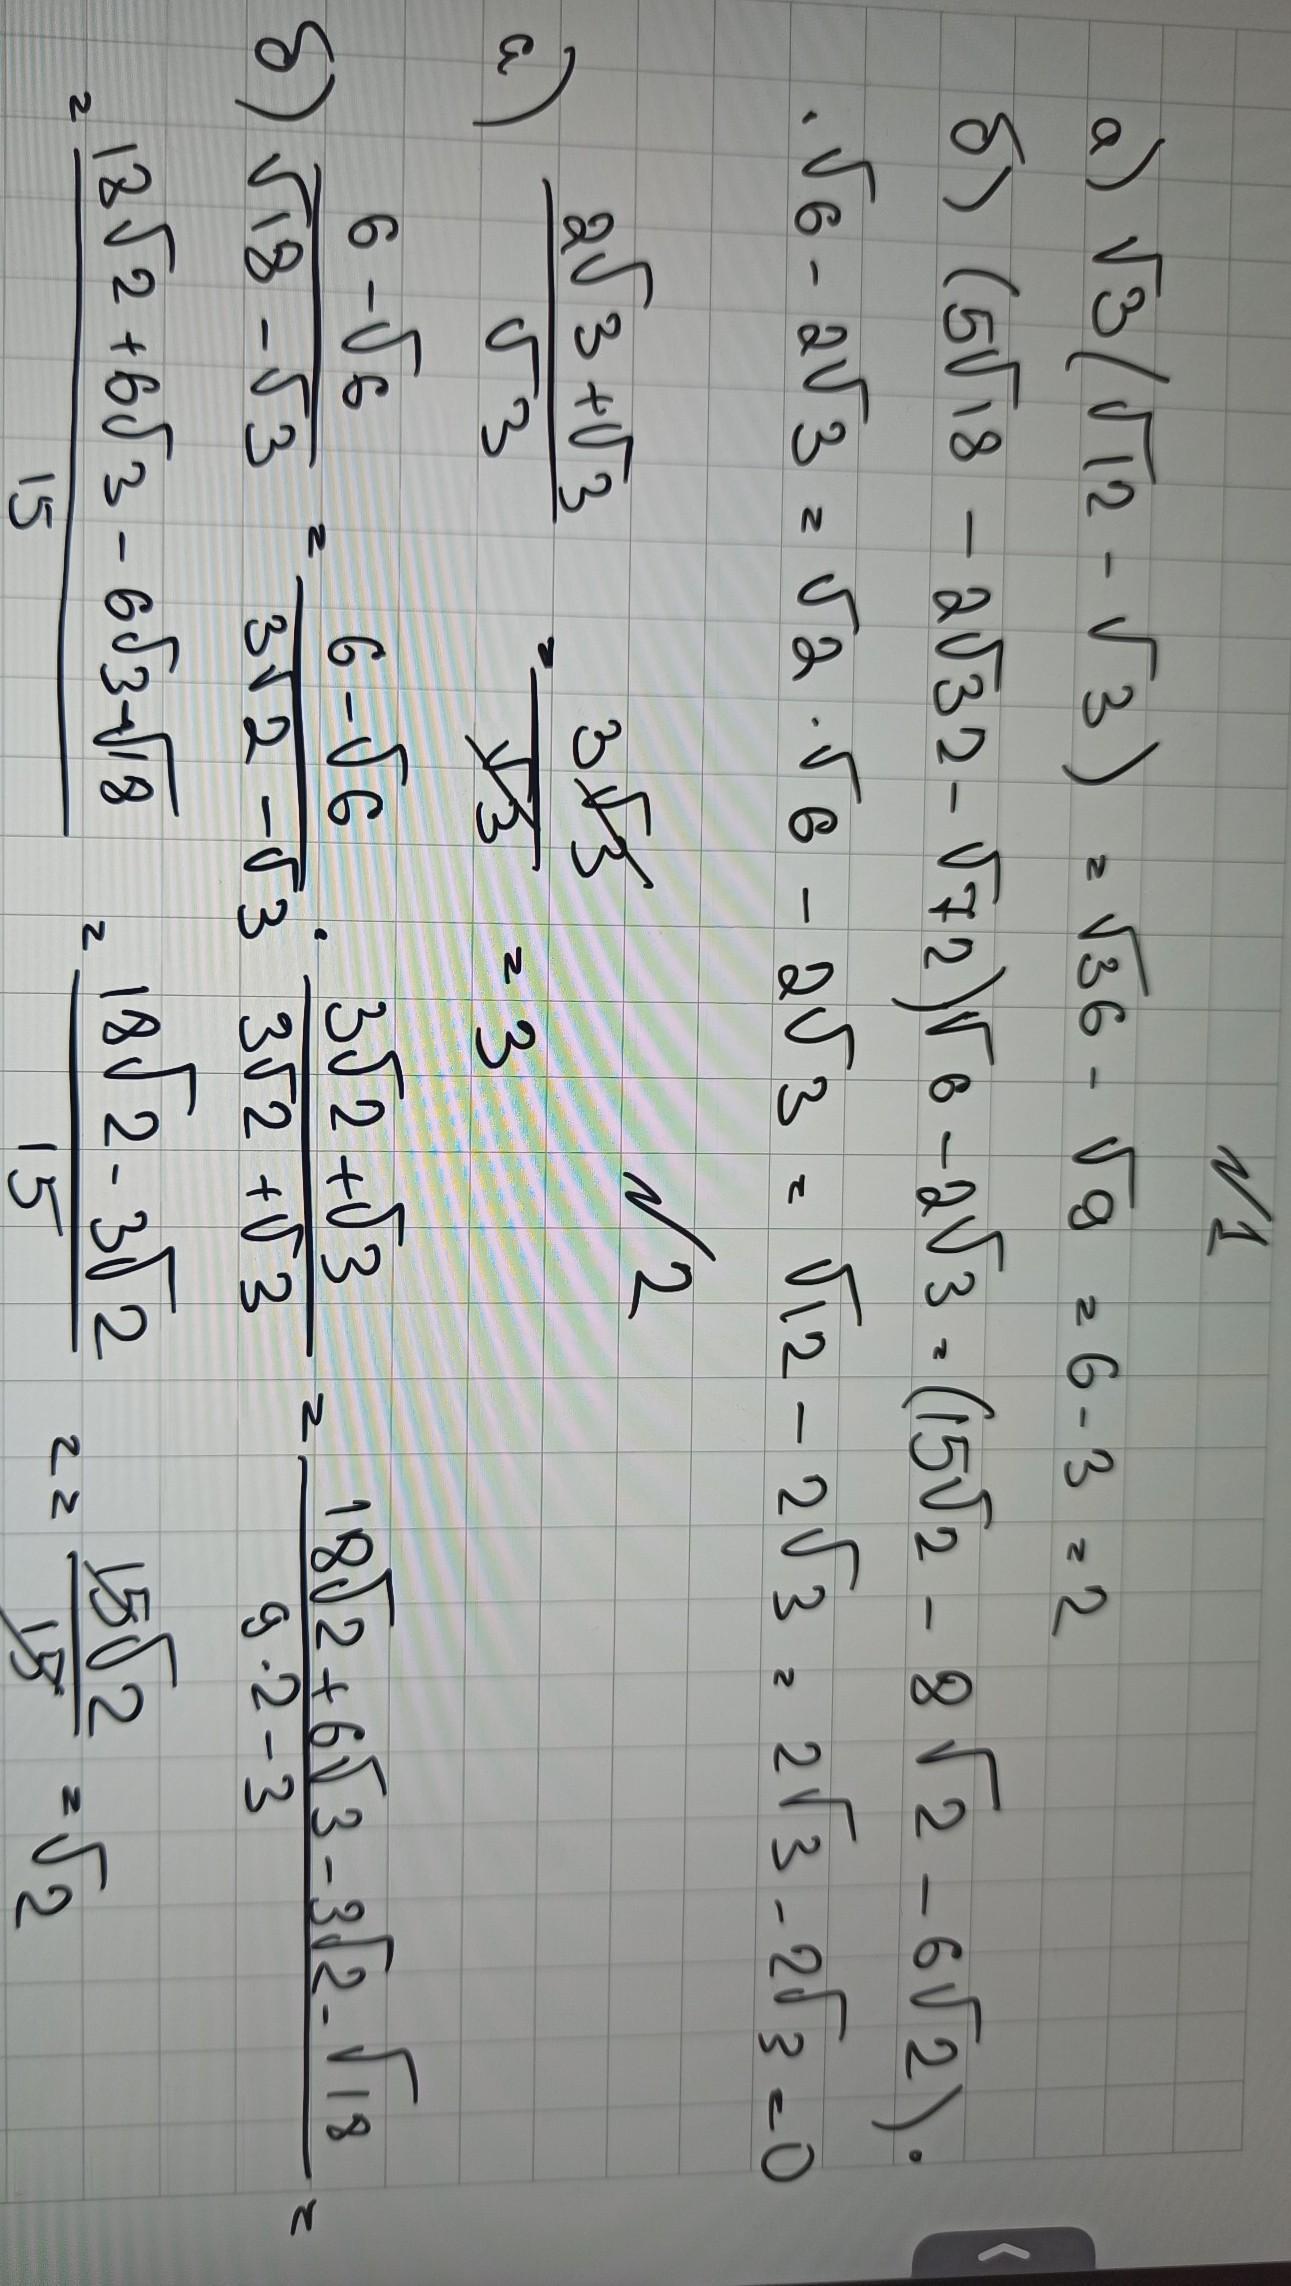 №1
а) √3(√12 - √3) = √36 - √9 = 6 - 3 = 2
б) (5√18 - 2√32 - √72)√6 - 2√3 = (15√2 - 8√2 - 6√2)·
·√6 - 2√3 = √2·√6 - 2√3 = √12 - 2√3 = 2√3 - 2√3 = 0
№2
а) (2√3 + √3)/√3 = 3√3/√3 = 3
б) (6 - √6)/(√18 - √3) = (6 - √6)/(3√2 - √3) · (3√2 + √3)/(3√2 + √3) = (18√2 + 6√3 - 3√2 - √18)/(9·2 - 3) =
= (18√2 + 6√3 - 6√3 - √18)/15 = (18√2 - 3√2)/15 = = 15√2/15 = √2